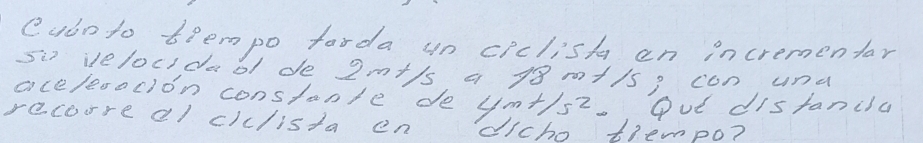 Cuánto tiempo tarda un ciclista en incrementar
su velocidad de 2mt/s a 18 mt/s; con una
aceleración constante de 4mt/s². Qué distancia
recorre el ciclista en dicho tiempo?